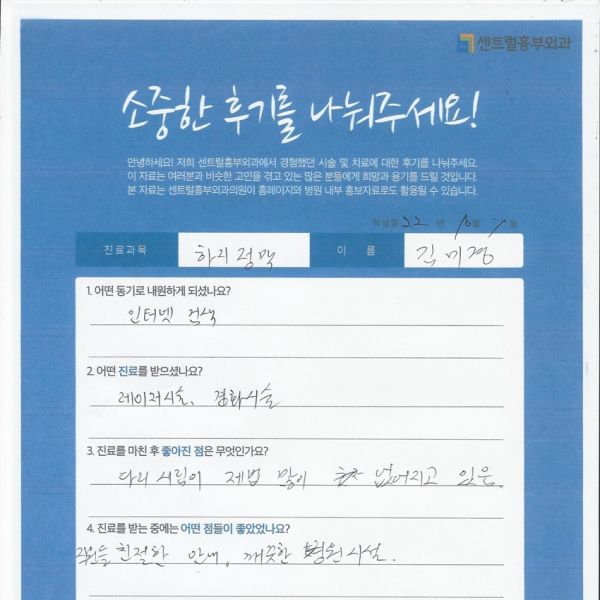 센트럴흉부외과
소중한 후기를 나눠주세요!
안녕하세요! 저희 센트럴흉부외과에서 경험했던 시술 및 치료에 대한 후기를 나눠주세요
이 자료는 여러분과 비슷한 고민을 겪고 있는 많은 분들에게 희망과 용기를 드릴 것입니다.
본 자료는 센트럴흉부외과의원이 홈페이지와 병원 내부 홍보자료로도 활용될 수 있습니다.
작성일 22 년 10 월 일
진료과목 하지정맥 이 름 김미경
1. 어떤 동기로 내원하게 되셨나요?
인터넷 검색
2. 어떤 진료를 받으셨나요?
레이저시술, 경화시술
3. 진료를 마친 후 좋아진 점은 무엇인가요?
다리 시림이 제법 많이 없어지고 있음.
4. 진료를 받는 중에는 어떤 점들이 좋았었나요?
직원들 친절한 안내, 깨끗한 병원시설.